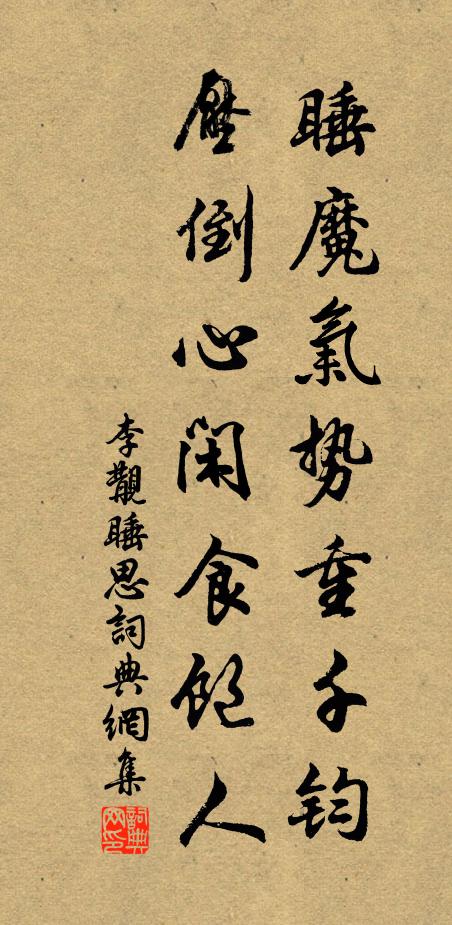 睡魔氣勢重千鈞
壓倒心閑食飽人
李覯睡思詞典網集
詞典網印